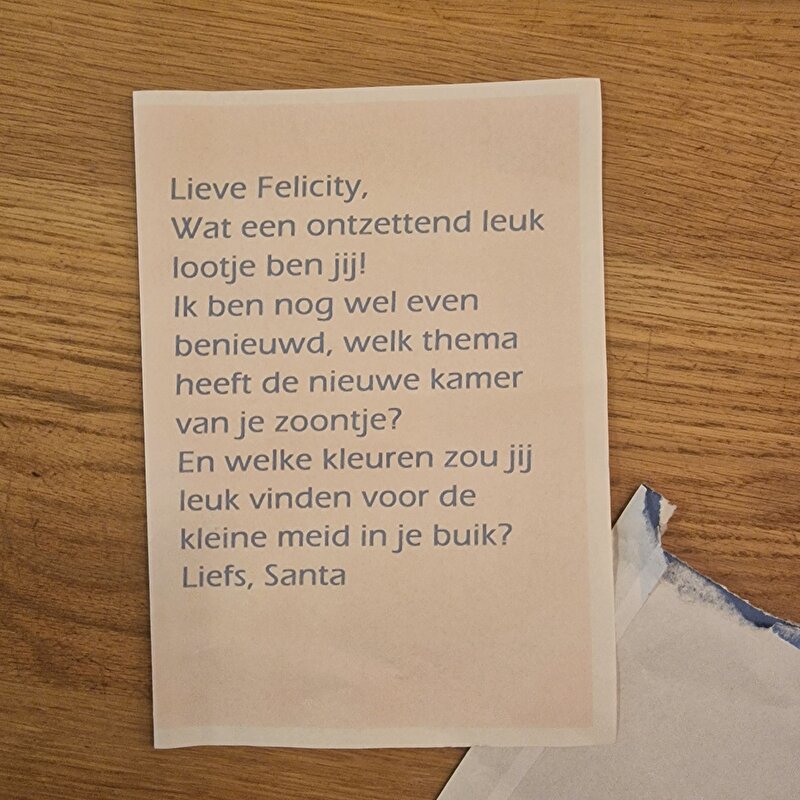 Lieve Felicity,
Wat een ontzettend leuk
lootje ben jij!
Ik ben nog wel even
benieuwd, welk thema
heeft de nieuwe kamer
van je zoontje?
En welke kleuren zou jij
leuk vinden voor de
kleine meid in je buik?
Liefs, Santa